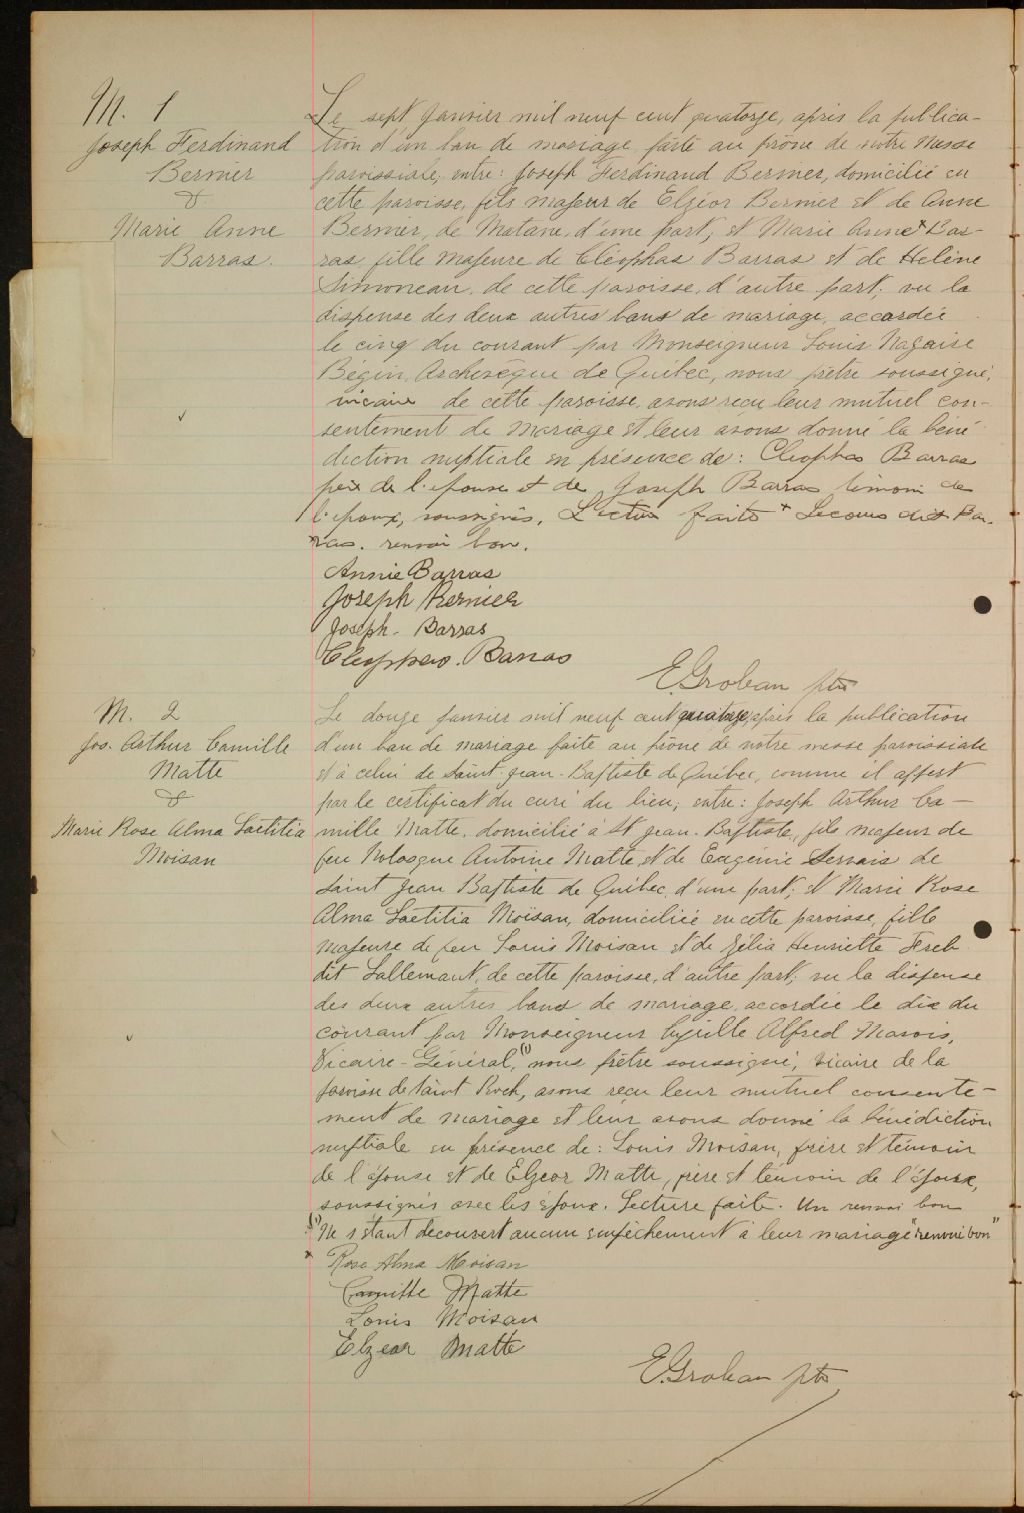 M. 1
Joseph Ferdinand
Bernier
&
Marie Anne
Barras.
Le sept Janvier mil neuf cent quatorze, après la publica-
tion d'un ban de mariage faite au prône de notre Messe
paroissiale, entre: Joseph Ferdinand Bernier, domicilié en
cette paroisse, fils majeur de Elzéor Bernier et de Anne
Bernier, de Matane, d'une part; et Marie Anne + Bar-
ras, fille majeure de Cléophas Barras et de Helène
Simoneau, de cette paroisse, d'autre part; vu la
dispense des deux autres bans de mariage, accordée
le cinq du courant par Monseigneur Louis Nazaire
Bégin, Archevêque de Québec, nous prêtre soussigné,
vicaire de cette paroisse, avons reçu leur mutuel con-
sentement de mariage et leur avons donné la béné
diction nuptiale en présence de: Cleophas Barras
père de l'épouse et de Joseph Barras témoin de
l'époux, soussignés. Lecture faite +
ras. renvoi bon.
Annie Barras
Joseph Bernier
Joseph. Barras
Cleophas. Barras
E. Groleau ptre
M. 2
Jos. Arthur Camille
Matte
&
Marie Rose Alma Laetitia
Moisan
Le douze janvier mil neuf cent quatorze, après la publication
d'un ban de mariage faite au prône de notre messe paroissiale
et à celui de Saint-Jean-Baptiste de Québec, comme il appert
par le certificat du curé du lieu, entre: Joseph Arthur Ca-
mille Matte, domicilié à St Jean-Baptiste, fils majeur de
feu Antoine Matte, et de Eugénie de
Saint Jean Baptiste de Québec, d'une part; et Marie Rose
Alma Laetitia Moïsan, domiciliée en cette paroisse, fille
majeure de feu Louis Moisan et de Zélia Henriette
dit Lallemant, de cette paroisse, d'autre part; vu la dispense
des deux autres bans de mariage, accordée le dix du
courant par Monseigneur Cyrille Alfred Marois,
Vicaire-Général,(1) nous prêtre soussigné, vicaire de la
paroisse de Saint Roch, avons reçu leur mutuel consente-
ment de mariage et leur avons donné la bénédiction
nuptiale en présence de: Louis Moisan, frère et témoin
de l'épouse et de Elzeor Matte, père et témoin de l'époux,
soussignés avec les époux. Lecture faite. Un renvoi bon
(1) Ne s'étant découvert aucun empêchement à leur mariage "renvoi bon"
x Rose Alma Moisan
Camille Matte
Louis Moisan
Elzear Matte
E. Groleau ptre